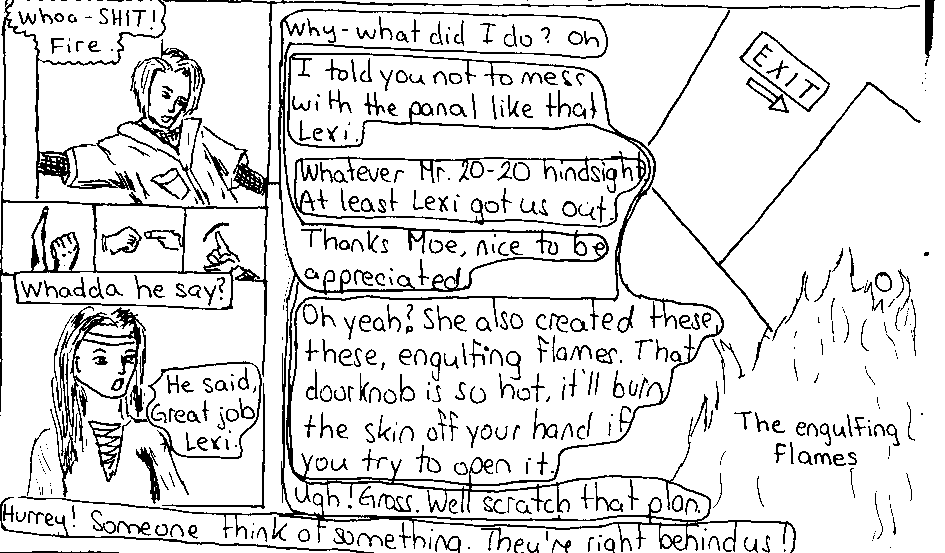 Whoa-SHIT!
Fire.
Whadda he say?
He said,
Great job
Lexi.
Why-what did I do? Oh
I told you not to mess
with the panal like that
Lexi.
Whatever Mr. 20-20 hindsight
At least Lexi got us out.
Thanks Moe, nice to be
appreciated.
Oh yeah? She also created these,
these, engulfing flames. That
doorknob is so hot, it'll burn
the skin off your hand if
you try to open it.
Ugh! Gross. Well scratch that plan.
EXIT
The engulfing
flames
Hurrey! Someone think of something. They're right behind us!